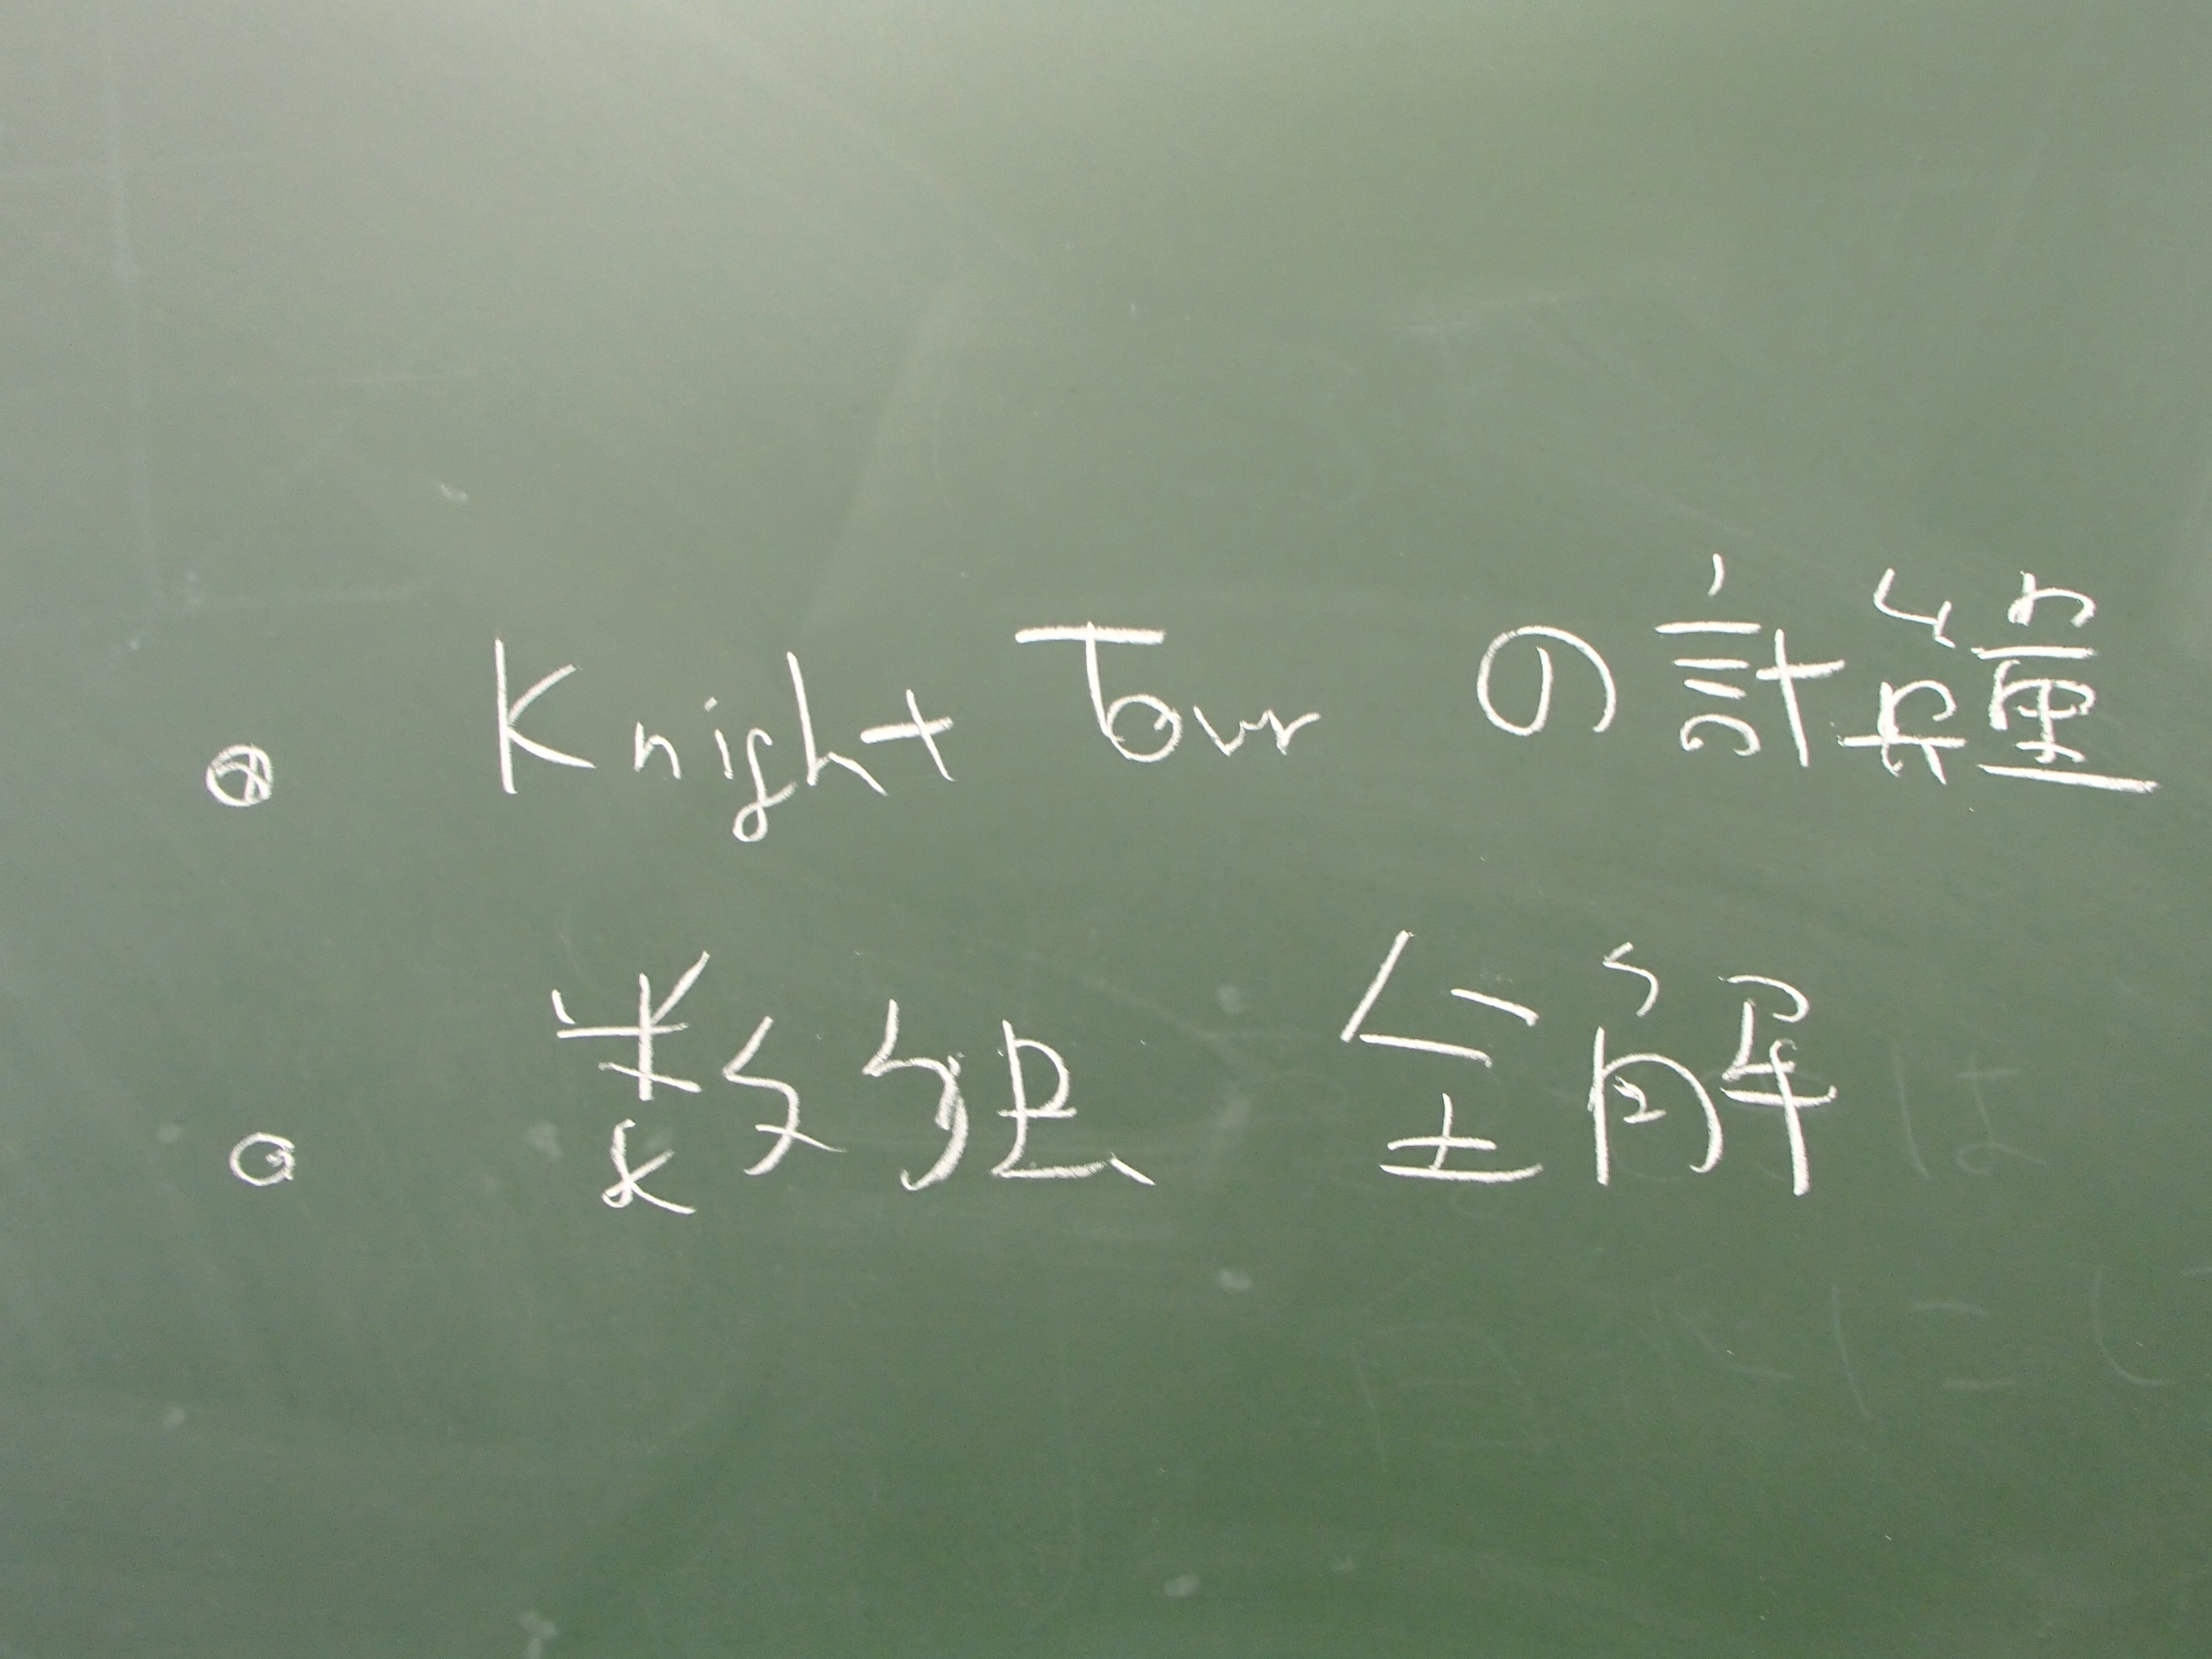 • Knight Tour の計算量
• 数独 全解